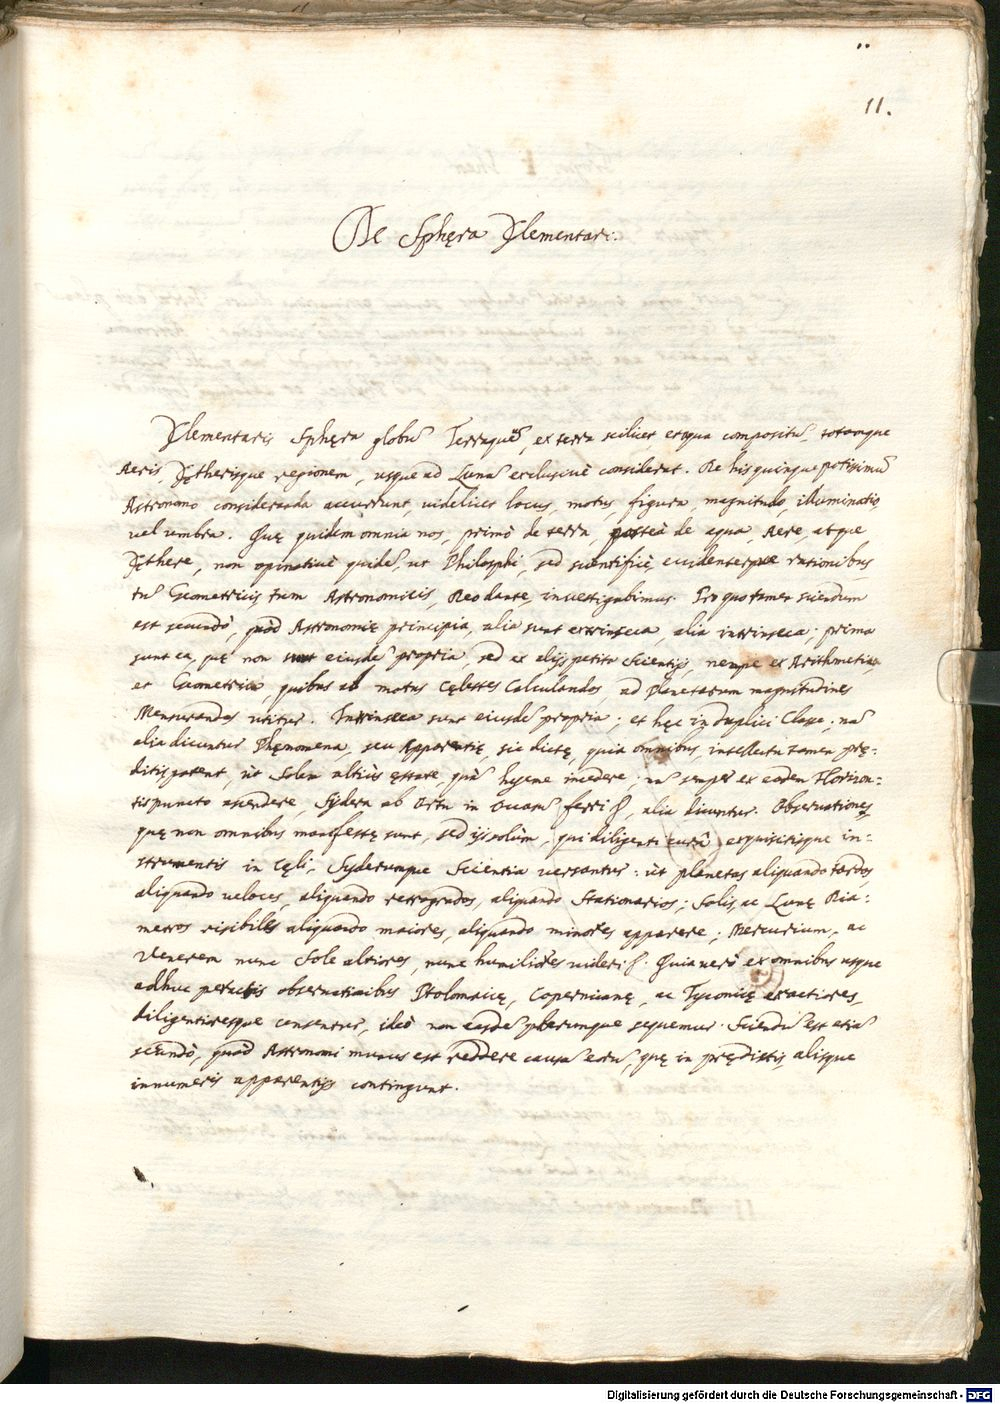 11.
De Sphęra Elementari.
Elementaris Sphęra globũ Terraqueũ, ex terra scilicet et aqua compositũ, totamque
Aeris, Ætherisque regionem, usque ad Lunã exclusiuè considerat. De his quinque potissimũ
Astronomo consideranda occurrunt, uidelicet locus, motus, figura, magnitudo, illuminatio,
uel umbra. Quę quidem omnia nos, primò de terra, posteà de aqua, Aere, atque
Æthere, non opinatiuè quidẽ, ut Philosophi, sed scientificè, euidenterque rationibus
tũ Geometricis tum Astronomicis, Deo dante, inuestigabimus. Pro quo tamen sciendum
est secundò, quòd Astronomię principia, alia sunt extrinseca, alia intrinseca; prima
sunt ea, quę non sunt eiusdẽ propria, sed ex alijs petita Scientijs, nempe ex Arithmetica,
et Geometria, quibus ad motus Cęlestes Calculandos, ad Planetarum magnitudines
Mensurandas utitur. Intrinseca sunt eiusdẽ propria; et hęc in duplici Classe; nã
alia dicuntur Phęnomena, seu Apparentię, sic dictę, quia omnibus, intellectu tamen prę-
ditis, patent, ut Solem altiùs ęstate, quã hyeme incedere; nõ semper ex eodem Horizon-
tis puncto ascendere, Sydera ab Ortu in Occasũ ferri &, alia dicuntur Obseruationes,
quę non omnibus manifestę sunt, sed ijs solùm, qui diligenti curâ exquisitisque in-
strumentis in Cęli, Syderumque Scientia uersantur: ut planetas aliquando tardos,
aliquando ueloces, aliquando retrogrados, aliquando Stationarios; Solis, ac Lunę Dia-
metros uisibiles aliquando maiores, aliquando minores apparere; Mercurium, ac
Venerem nunc Sole altiores, nunc humiliores uideri &. Quia uerò ex omnibus usque
adhuc peractis obseruationibus Ptolomaicę, Copernicanę, ac Tyconicę exactiores,
diligentioresque censentur, ideò non easdẽ plerumque sequemur. Sciendũ est etiã
secundò, quòd Astronomi munus est reddere causã eorũ, quę in prędictis, alisque
innumeris apparentijs contingunt.
Digitalisierung gefördert durch die Deutsche Forschungsgemeinschaft - DFG